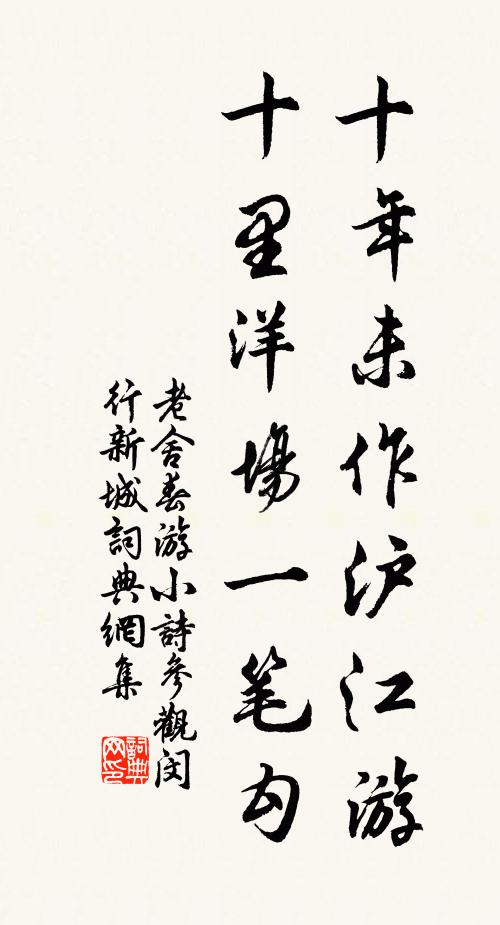 十年未作沪江游
十里洋場一笔勾
老舍春游小詩參觀闵
行新城詞典網集
詞典
网印